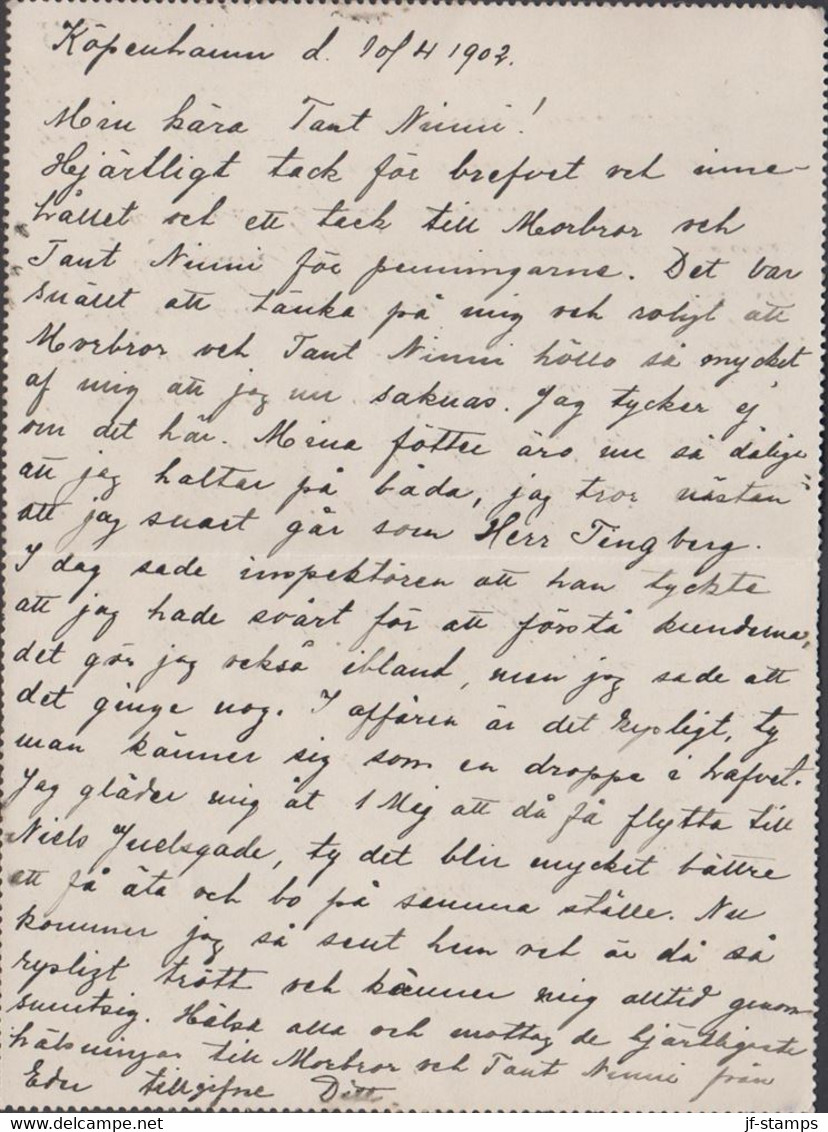 Köpenhamn d. 10/4 1902.
Min kära Tant Ninni!
Hjärtligt tack för brefvet och inne-
hållet och ett tack till Morbror och
Tant Ninni för penningarne. Det var
snällt att tänka på mig och roligt att
Morbror och Tant Ninni höllo så mycket
af mig att jag nu saknas. Jag tycker ej
om det här. Mina fötter äro nu så dåliga
att jag haltar på båda, jag tror nästan
att jag snart går som Herr Tingberg.
I dag sade inspektören att han tyckte
att jag hade svårt för att förstå kunderna,
det gör jag också ibland, men jag sade att
det ginge nog. I affären är det rysligt, ty
man känner sig som en droppe i hafvet.
Jag gläder mig åt 1 Maj att då få flytta till
Niels Juelsgade, ty det blir mycket bättre
att få äta och bo på samma ställe. Nu
kommer jag så sent hem och är då så
rysligt trött och känner mig alltid genom-
svettig. Hälsa alla och mottag de hjärtligaste
hälsningar till Morbror och Tant Ninni från
Eder tillgifne
jf-stamps